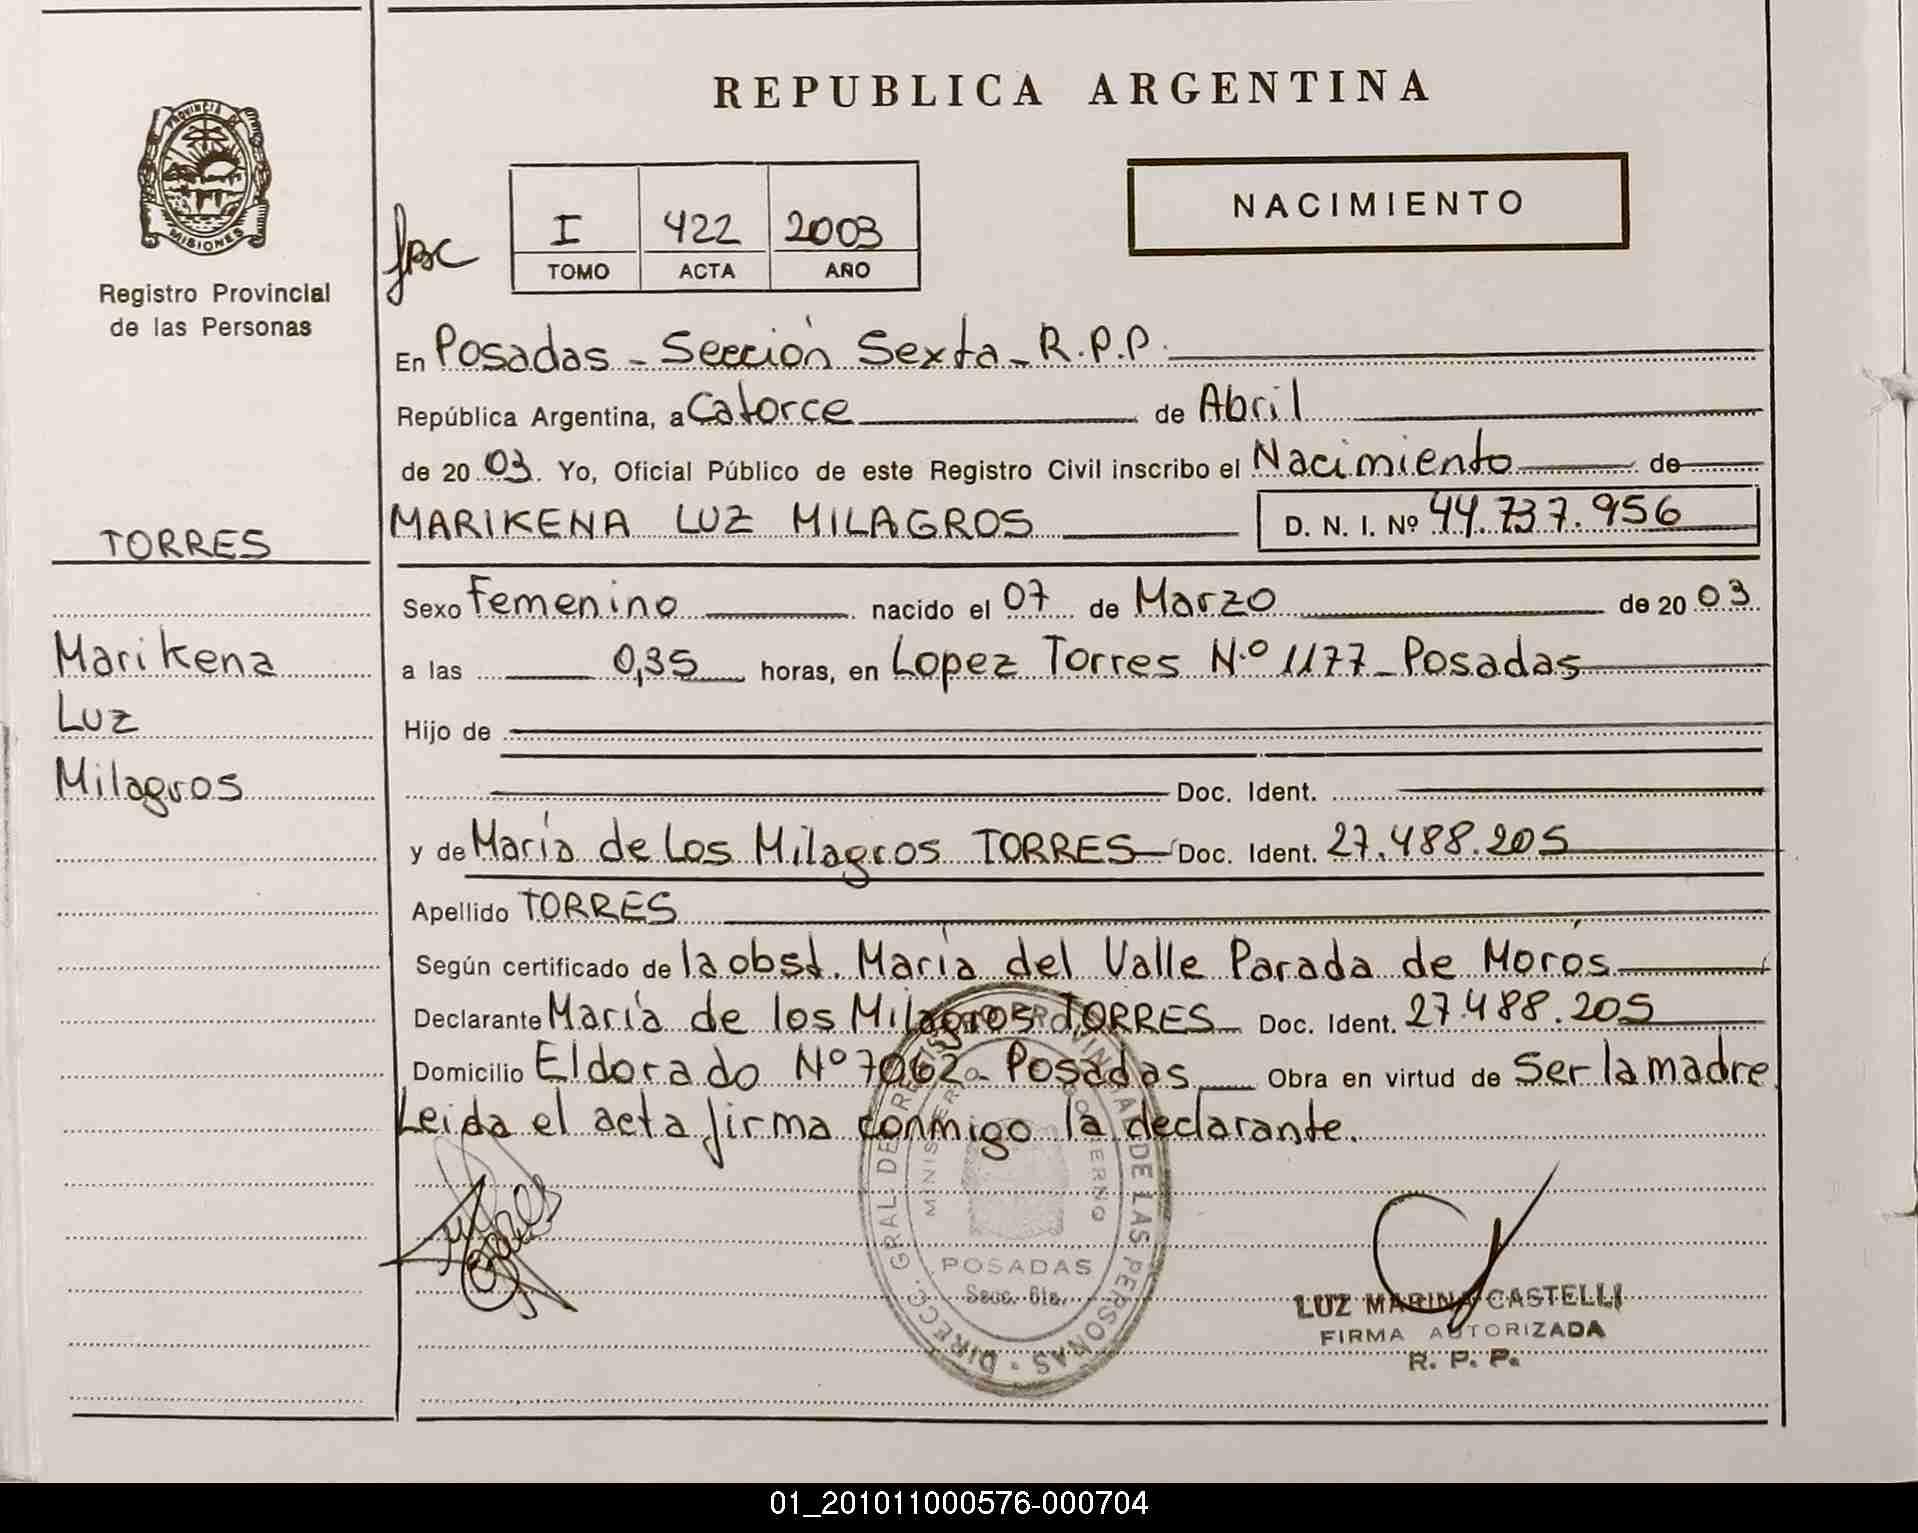 REPUBLICA ARGENTINA
PROVINCIA DE
MISIONES
Registro Provincial
de las Personas
NACIMIENTO
I 422 2003
TOMO ACTA AÑO
En Posadas - Sección Sexta - R.P.P.
República Argentina, a Catorce de Abril
de 20 03. Yo, Oficial Público de este Registro Civil inscribo el Nacimiento de
MARIKENA LUZ MILAGROS D. N. I. Nº 44.737.956
TORRES
Sexo Femenino nacido el 07 de Marzo de 20 03
Marikena
a las 0,35 horas, en Lopez Torres N.º 1177 - Posadas
Luz
Hijo de
Milagros
Doc. Ident.
y de María de Los Milagros TORRES Doc. Ident. 27.488.205
Apellido TORRES
Según certificado de la obst. María del Valle Parada de Morós
Declarante María de los Milagros TORRES Doc. Ident. 27.488.205
Domicilio Eldorado Nº 7062 - Posadas Obra en virtud de Ser la madre
Leida el acta firma conmigo la declarante.
DIRECC. GRAL DE REGISTRO PROVINCIAL DE LAS PERSONAS
MINISTERIO GOBIERNO
POSADAS
Secc. 6ta.
LUZ MARINA CASTELLI
FIRMA AUTORIZADA
R. P. P.
01_201011000576-000704